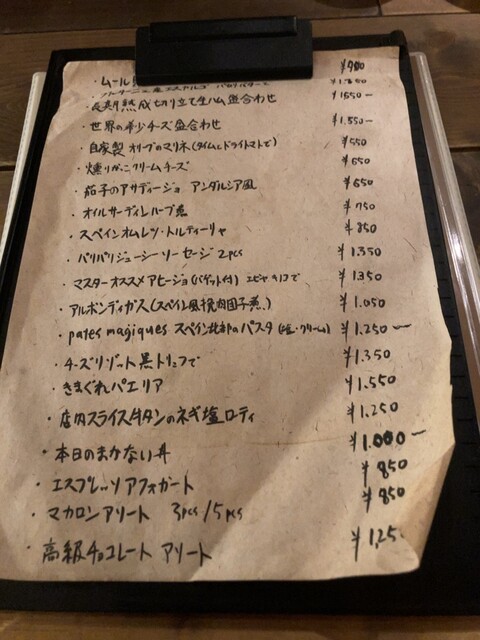 ・ムール ¥980
¥1.350
・長期熟成切り立て生ハム盛合わせ ¥1550ー
・世界の希少チーズ盛合わせ ¥1.550ー
・自家製 オリーブのマリネ(タイムとドライトマトで) ¥550
・燻りがっこクリームチーズ ¥650
・茄子のアサディージョ アンダルシア風 ¥650
・オイルサーディンハーブ煮 ¥750
・スペインオムレツ・トルティーリャ ¥850
・パリパリジューシーソーセージ 2pcs ¥1.350
・マスターオススメアヒージョ(バゲット付) エビやキノコで ¥1.350
・アルボンディガス(スペイン風挽肉団子煮) ¥1.050
・pates magiques スペイン北部のパスタ (塩・クリーム) ¥1.250ー
・チーズリゾット黒トリュフで ¥1.350
・きまぐれパエリア ¥1.550
・店内スライス牛タンのネギ塩ロティ ¥1.250
・本日のまかない丼 ¥1.000ー
・エスプレッソアフォガート ¥850
・マカロンアソート 3pcs/5pcs ¥850
・高級チョコレート アソート ¥1,25